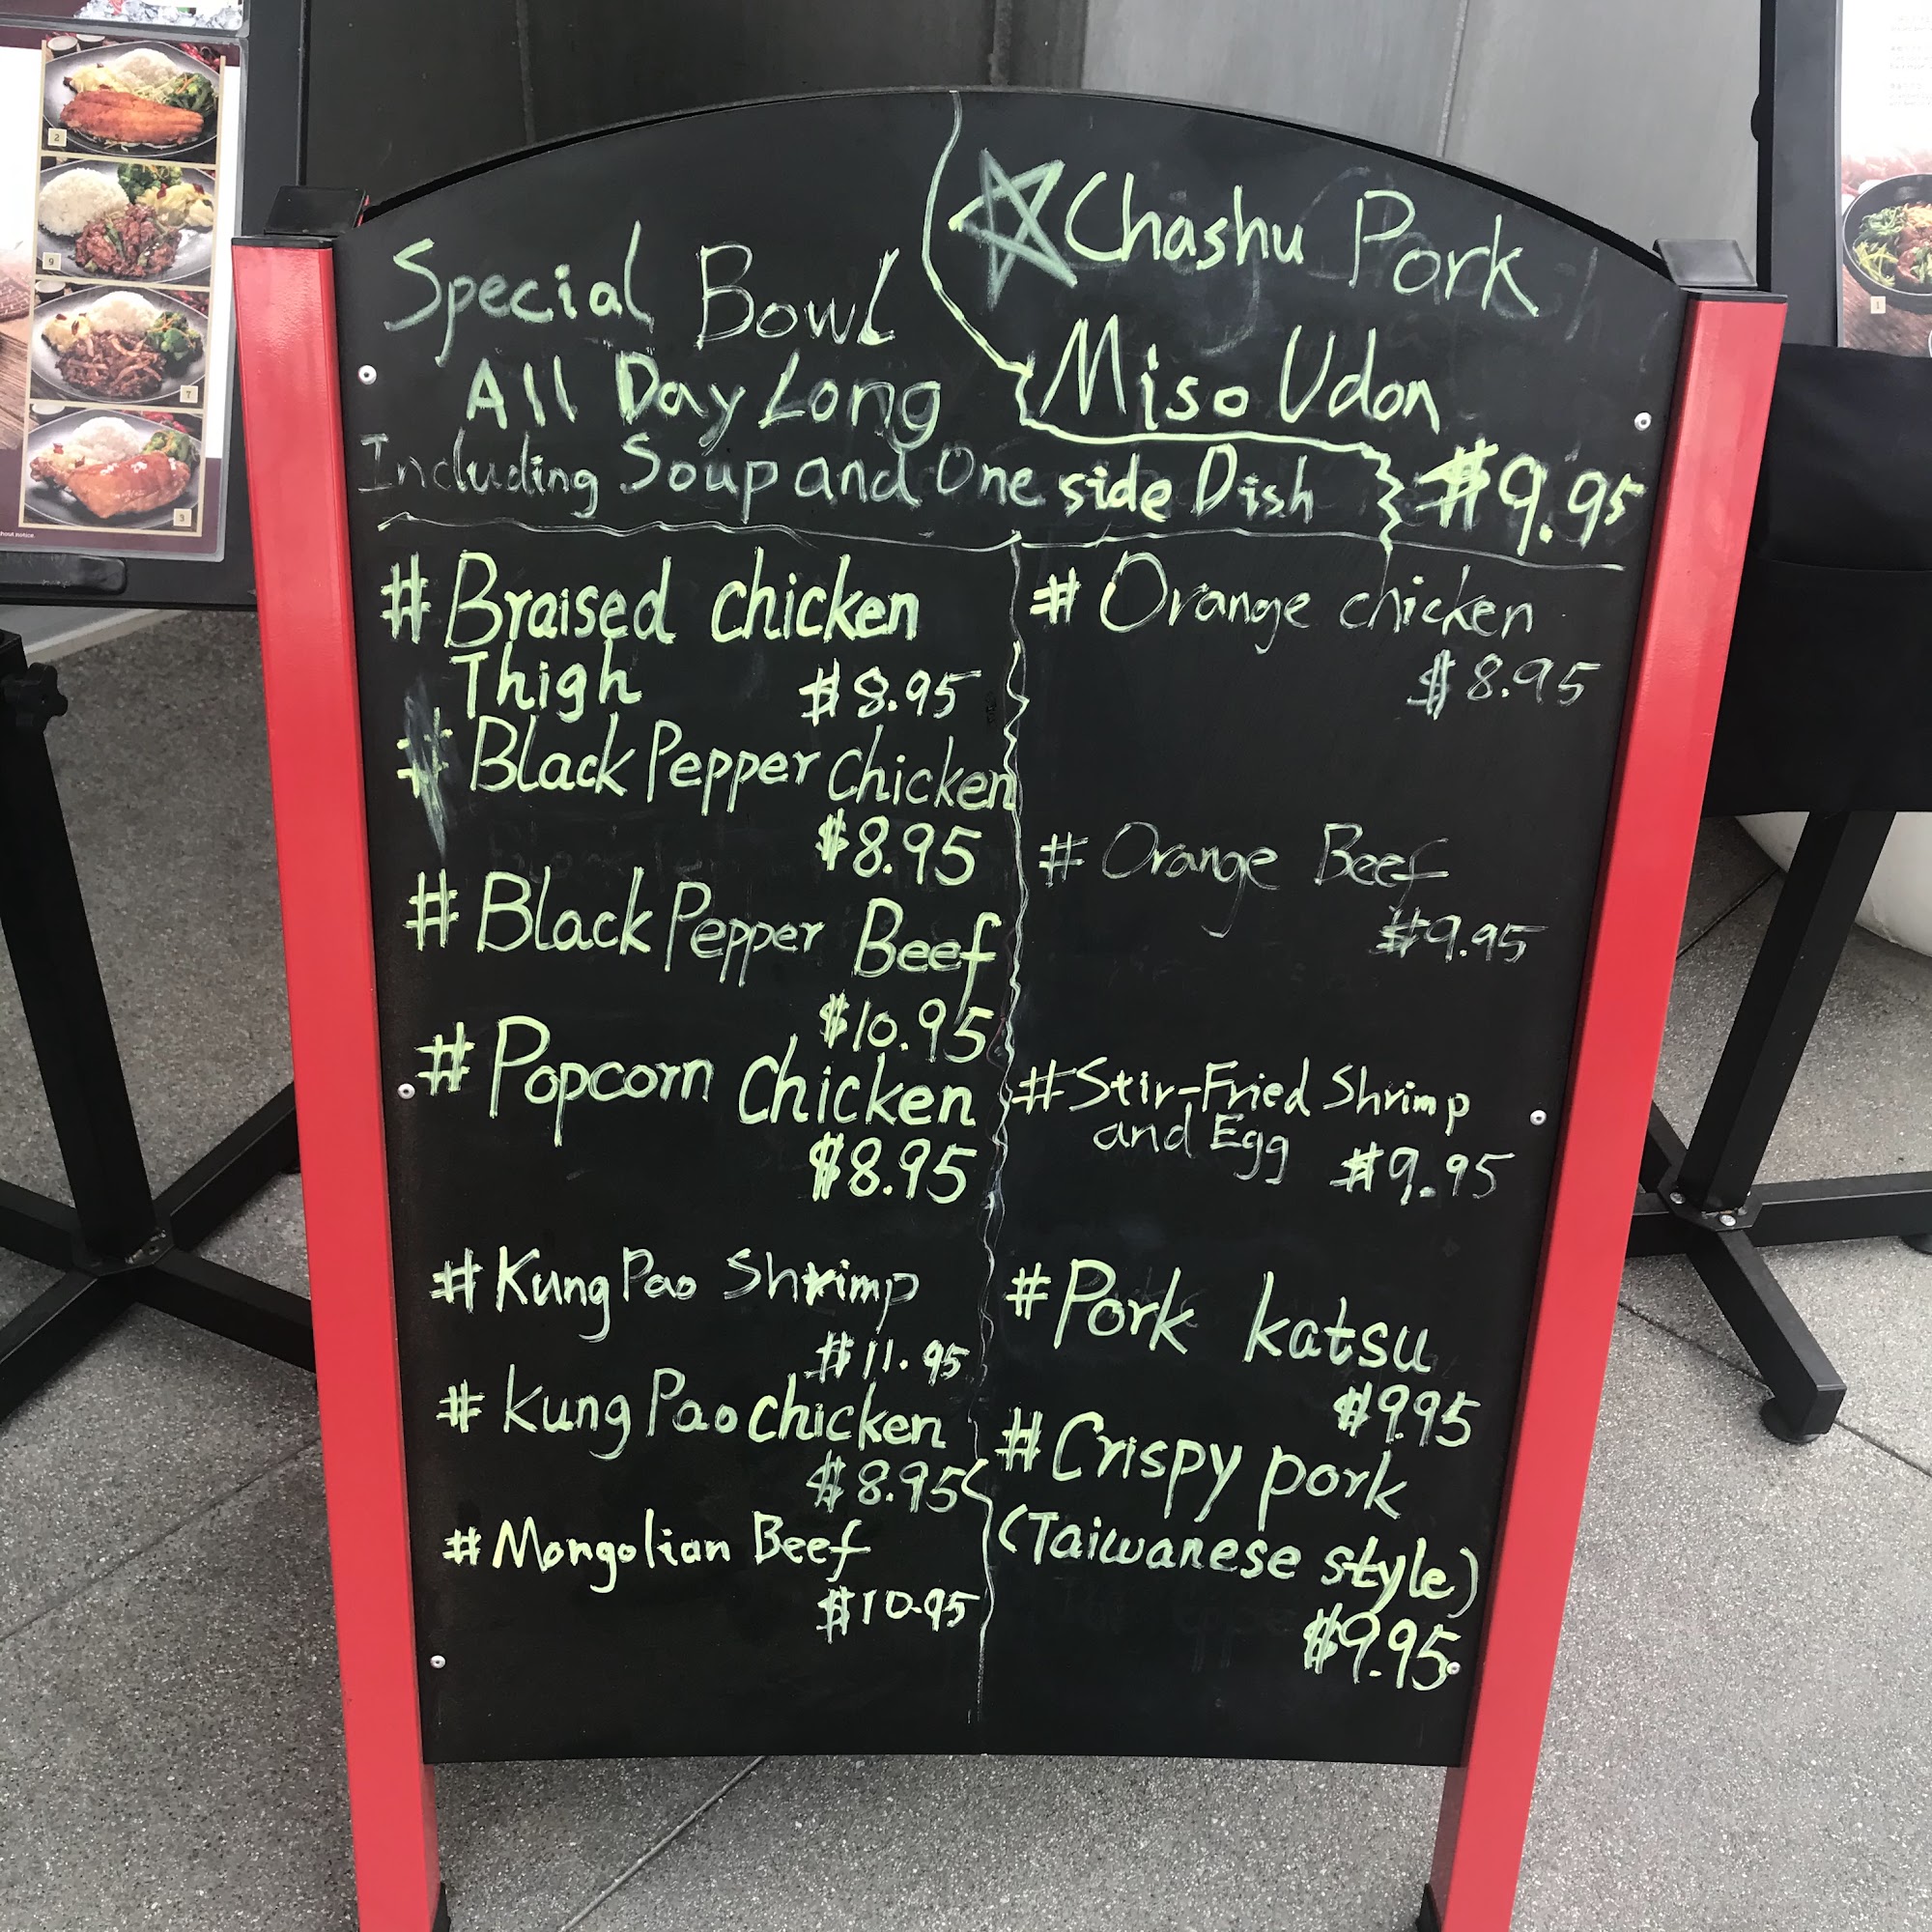 Special Bowl
All Day Long
Including Soup and One side Dish
Chashu Pork
Miso Udon
$9.95
# Braised chicken
Thigh $8.95
# Black Pepper Chicken
$8.95
# Black Pepper Beef
$10.95
# Popcorn Chicken
$8.95
# Kung Pao Shrimp
$11.95
# Kung Pao chicken
$8.95
# Mongolian Beef
$10.95
# Orange chicken
$8.95
# Orange Beef
$9.95
# Stir-Fried Shrimp
and Egg $9.95
# Pork katsu
$9.95
# Crispy pork
(Taiwanese style)
$9.95
2
9
7
3
hout notice
1